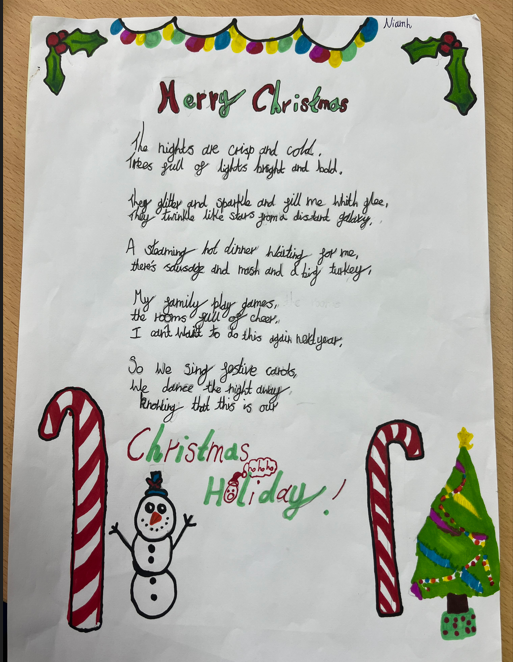 Niamh
Merry Christmas
The nights are crisp and cold.
Trees full of lights bright and bold.
They glitter and sparkle and fill me whith glee,
They twinkle like stars from a distant galaxy.
A steaming hot dinner waiting for me,
there's sausage and mash and a big turkey.
My family play games,
the rooms full of cheer,
I can't wait to do this again next year.
So we sing festive carols,
We dance the night away
knowing that this is our
Christmas
ho ho ho
Holiday!